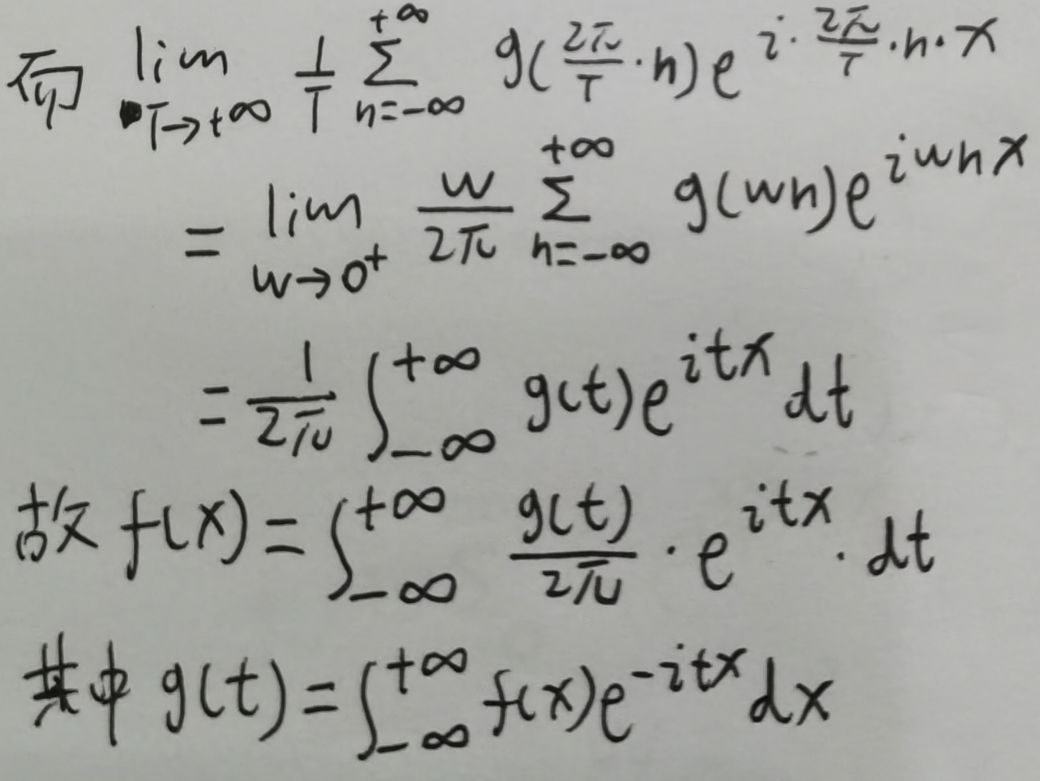 而 lim_{T→+∞} 1/T ∑_{n=-∞}^{+∞} g(2π/T·n)e^{i·2π/T·n·x}
= lim_{w→0⁺} w/2π ∑_{n=-∞}^{+∞} g(wn)e^{iwnx}
= 1/2π ∫_{-∞}^{+∞} g(t)e^{itx}dt
故 f(x)=∫_{-∞}^{+∞} g(t)/2π · e^{itx}·dt
其中 g(t)=∫_{-∞}^{+∞} f(x)e^{-itx}dx